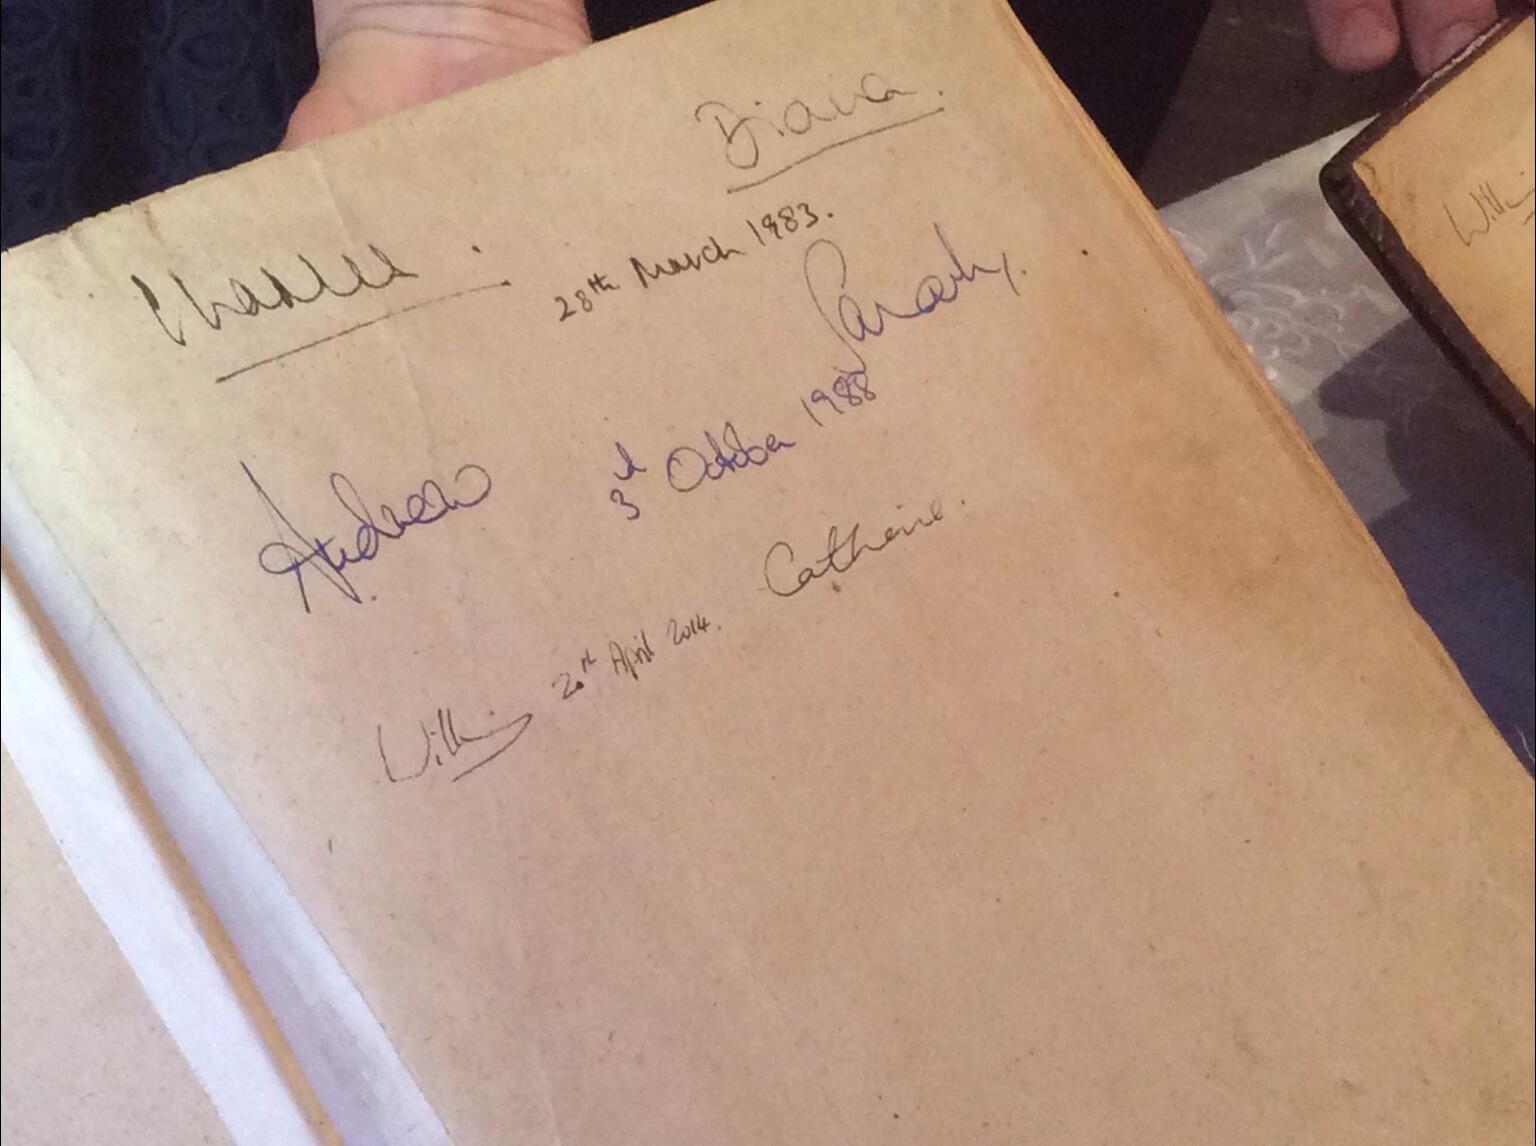 Diana.
Charles.
28th March 1983.
Sarah.
Andrew.
3rd October 1988
Catherine.
William 20th April 2014.
Willi